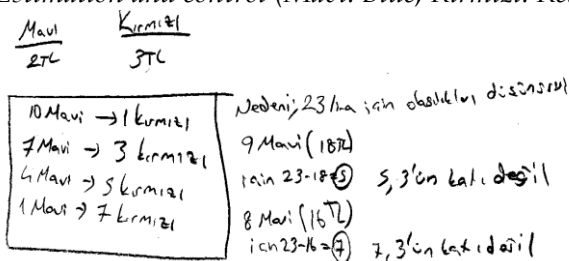 Estimation and control (Mavi: Blue, Kırmızı: Red
Mavi Kırmızı
2TL 3TL
10 Mavi → 1 kırmızı
7 Mavi → 3 kırmızı
4 Mavi → 5 kırmızı
1 Mavi → 7 kırmızı
Nedeni; 23 lira için olasılıkları düşünsek
9 Mavi (18TL)
için 23-18=5 5, 3'ün katı değil
8 Mavi (16TL)
için 23-16=7 7, 3'ün katı değil